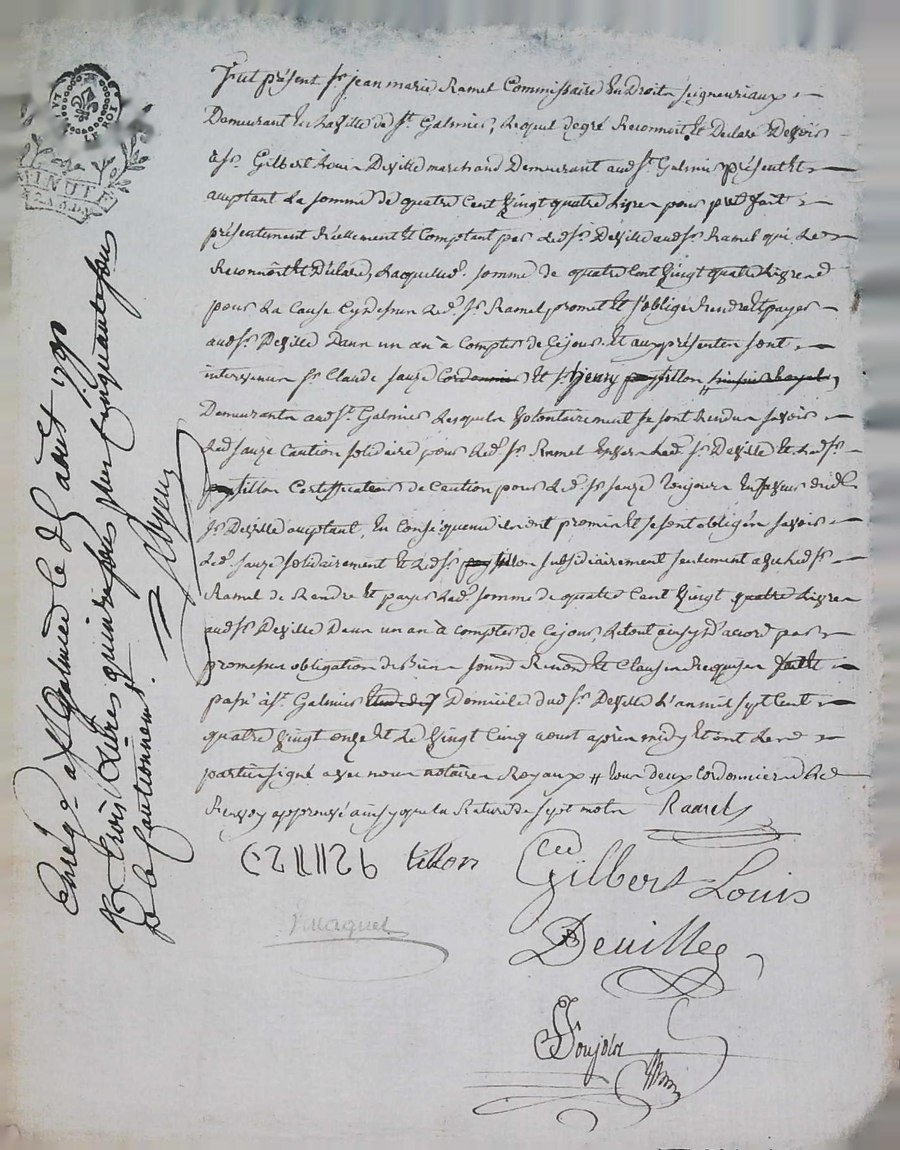 LA LOI
LE ROI
MINUTE
Fut présent sr jean marie Ramel Commissaire En Droits seigneuriaux
Demeurant En la Ville de st. Galmier, Lequel de gré Reconnoit et Declare Devoir
à sr. Gilbert Louis Deville marchand Demeurant aud. st. Galmier présent et
acceptant La somme de quatre Cent Vingt quatre Livres pour prêt fait
présentement Réellement et Comptant par Led. sr. Deville aud. sr. Ramel qui Le
Reconnoit et Déclare, Laquelle d. somme de quatre Cent Vingt quatre Livres
pour La Cause Cy dessus Led. sr. Ramel promet et s'oblige Rendre et payer
aud. sr. Deville Dans un an à Compter de Ce jour. Et aux présentes sont
intervenus sr. Claude sauze Cordonnier et sr. henry tillon
Demeurants aud. st. Galmier Lesquels Volontairement se sont Rendus savoir
Led. sauze Caution solidaire pour Led. sr. Ramel Envers Led. sr. Deville Et Led. sr.
tillon Certifficateur de Caution pour Led. sr. sauze Toujours En faveur dud.
sr. Deville acceptant, En Conséquence ils ont promis et se sont obligés savoir
Led. sauze solidairement et Led. sr. tillon subsidiairement seulement avec Led. sr.
Ramel de Rendre et payer Lad. somme de quatre Cent Vingt quatre Livres
aud. sr. Deville Dans un an à compter de Ce jour, Le tout ainsy d'accord par
promesses obligation de Biens soumd Renond et Clauses Requises
passé à st. Galmier Domicile dud. sr. Deville L'an mil sept Cent
quatre Vingt onze et Le Vingt Cinq aoust après midy et ont Les
parties signé avec nous notaires Royaux # tous deux cordonniers
Renvoy approuvé ainsy que la Rature de sept mots Ramel
tillon
Gilbert Louis
Deuilles
Enreg. a st Galmier le aout
Rx trois Livres quinze sous plus Cinquante sous
pr le Cautionnement.